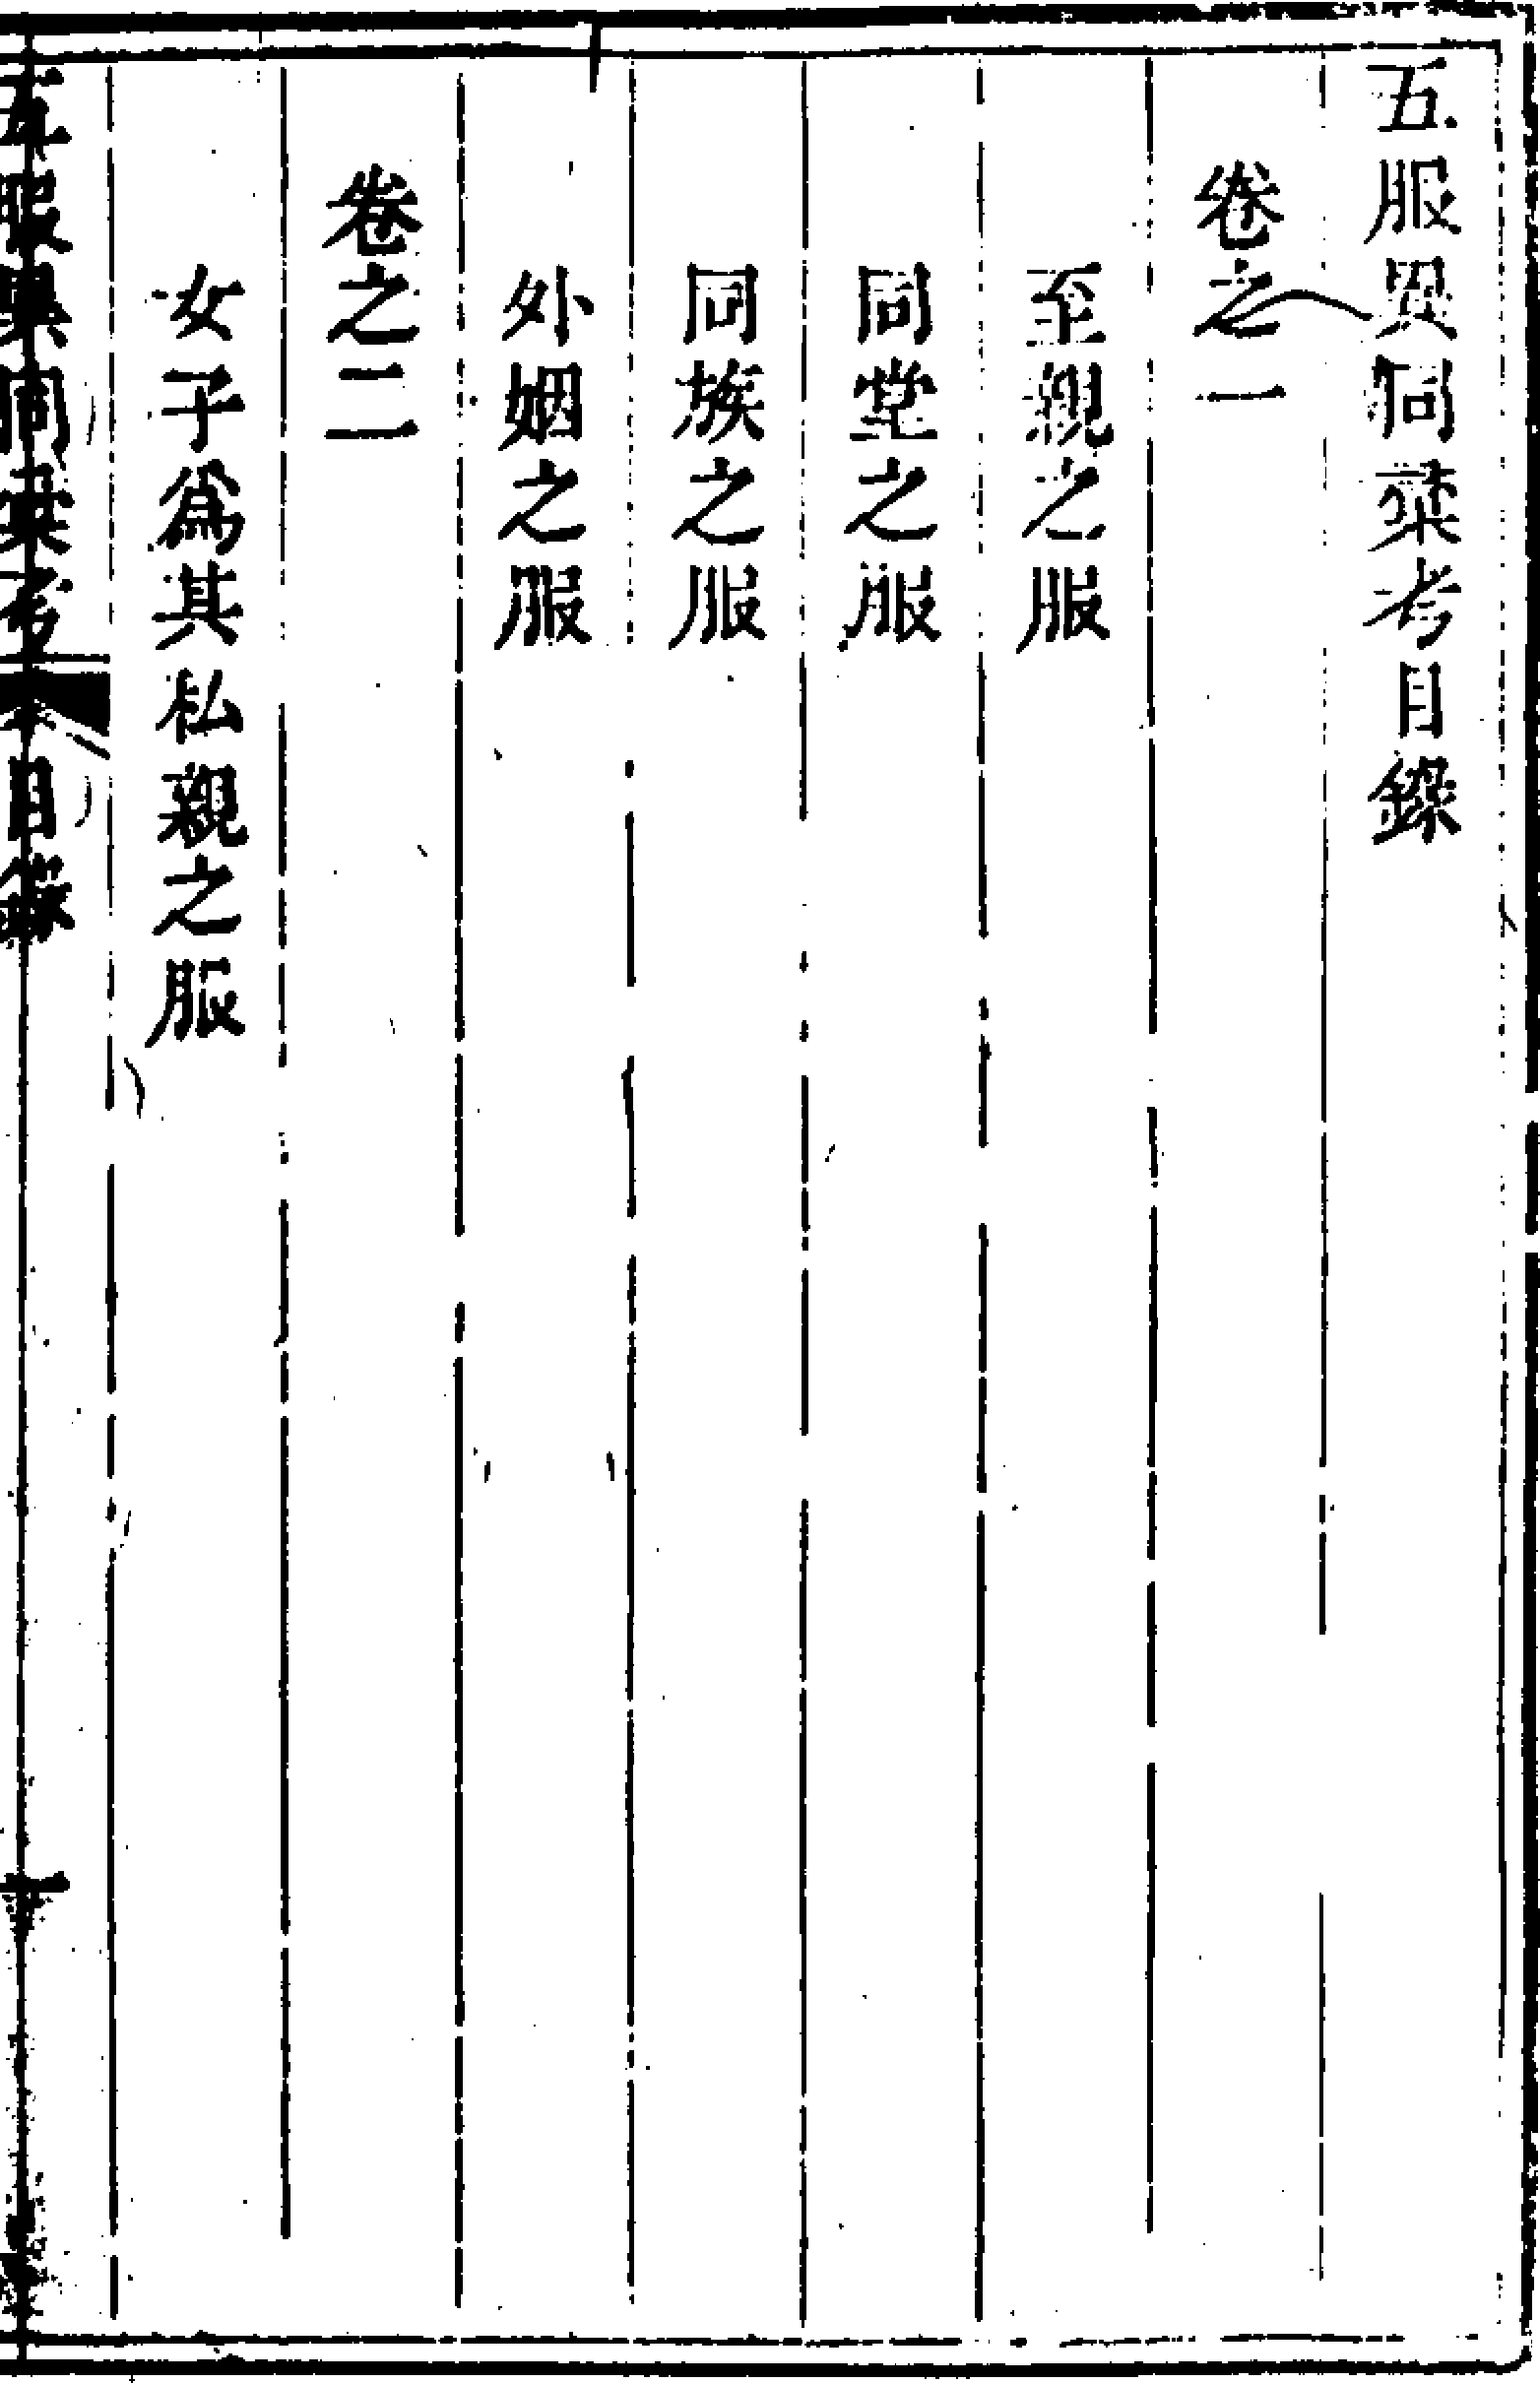 五服異同彚考目錄
卷之一
至親之服
同堂之服
同族之服
外姻之服
卷之二
女子爲其私親之服
五服異同彚考
目錄
一